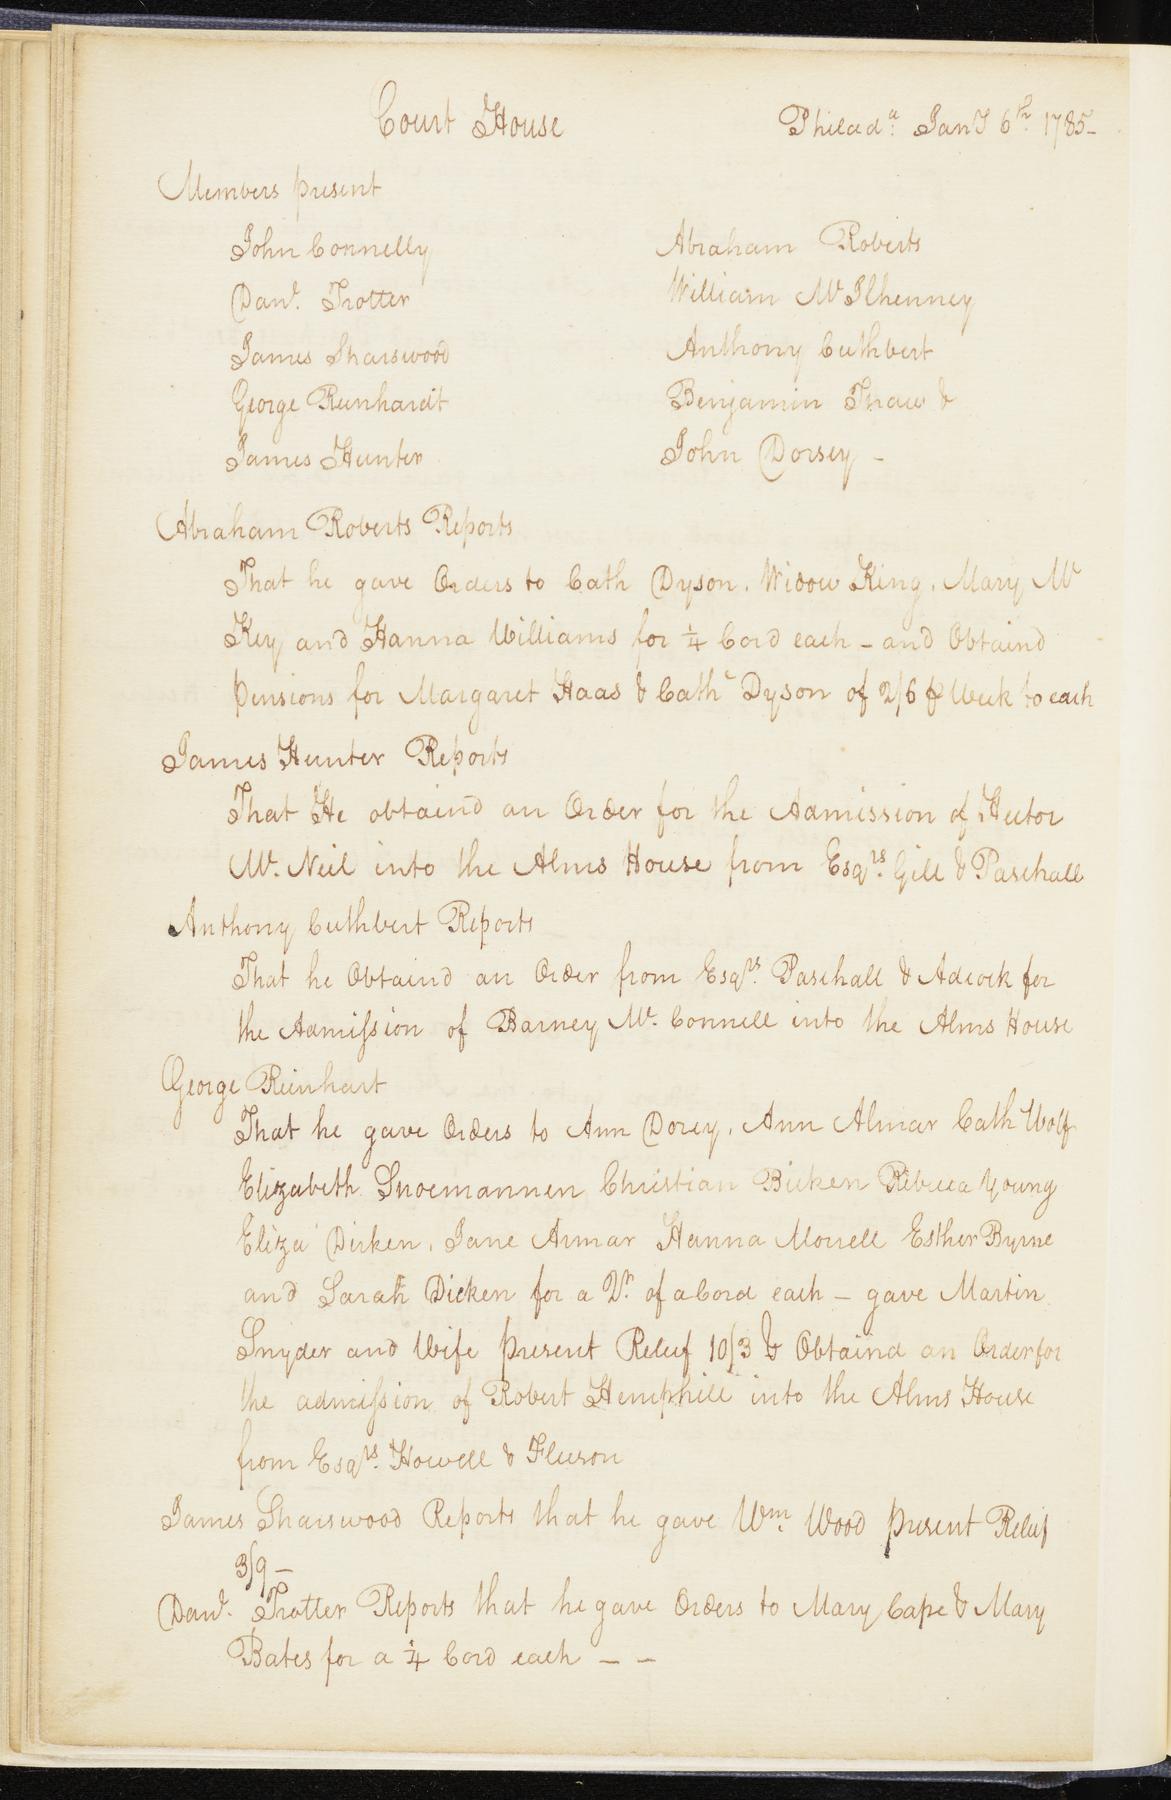 Court House
Philada. Jany 6th. 1785-
Members present
John Connelly
Abraham Roberts
Danl. Trotter
William Mc Ilhenney
James Sharswood
Anthony Cuthbert
George Reinhardt
Benjamin Thaw &
James Hunter
John Dorsey -
Abraham Roberts Reports
That he gave Orders to Cath Dyson, Widow King, Mary Mc
Key and Hanna Williams for ¼ Cord each - and Obtaind
pensions for Margaret Haas & Cathe Dyson of 2/6 ⅌ Week to each
James Hunter Reports
That He obtaind an Order for the Admission of Hector
Mc. Neil into the Alms House from Esqrs. Gill & Paschall
Anthony Cuthbert Reports
That he Obtaind an Order from Esqrs. Paschall & Adcock for
the Admission of Barney Mc. Connell into the Alms House
George Reinhart
That he gave Orders to Ann Dorey, Ann Almar Cath Wolf
Elizabeth Snoemannen Christian Bicken Rebecca Young
Eliza Dicken, Jane Armar Hanna Morrell Esther Byrne
and Sarah Dicken for a Qr. of a Cord each - gave Martin
Snyder and Wife present Relief 10/3 & Obtaind an Order for
the admission of Robert Hemphill into the Alms House
from Esqrs. Howell & Fleeson
James Sharswood Reports that he gave Wm. Wood present Relief
3/9 -
Danl. Trotter Reports that he gave Orders to Mary Cape & Mary
Bates for a ¼ Cord each - -